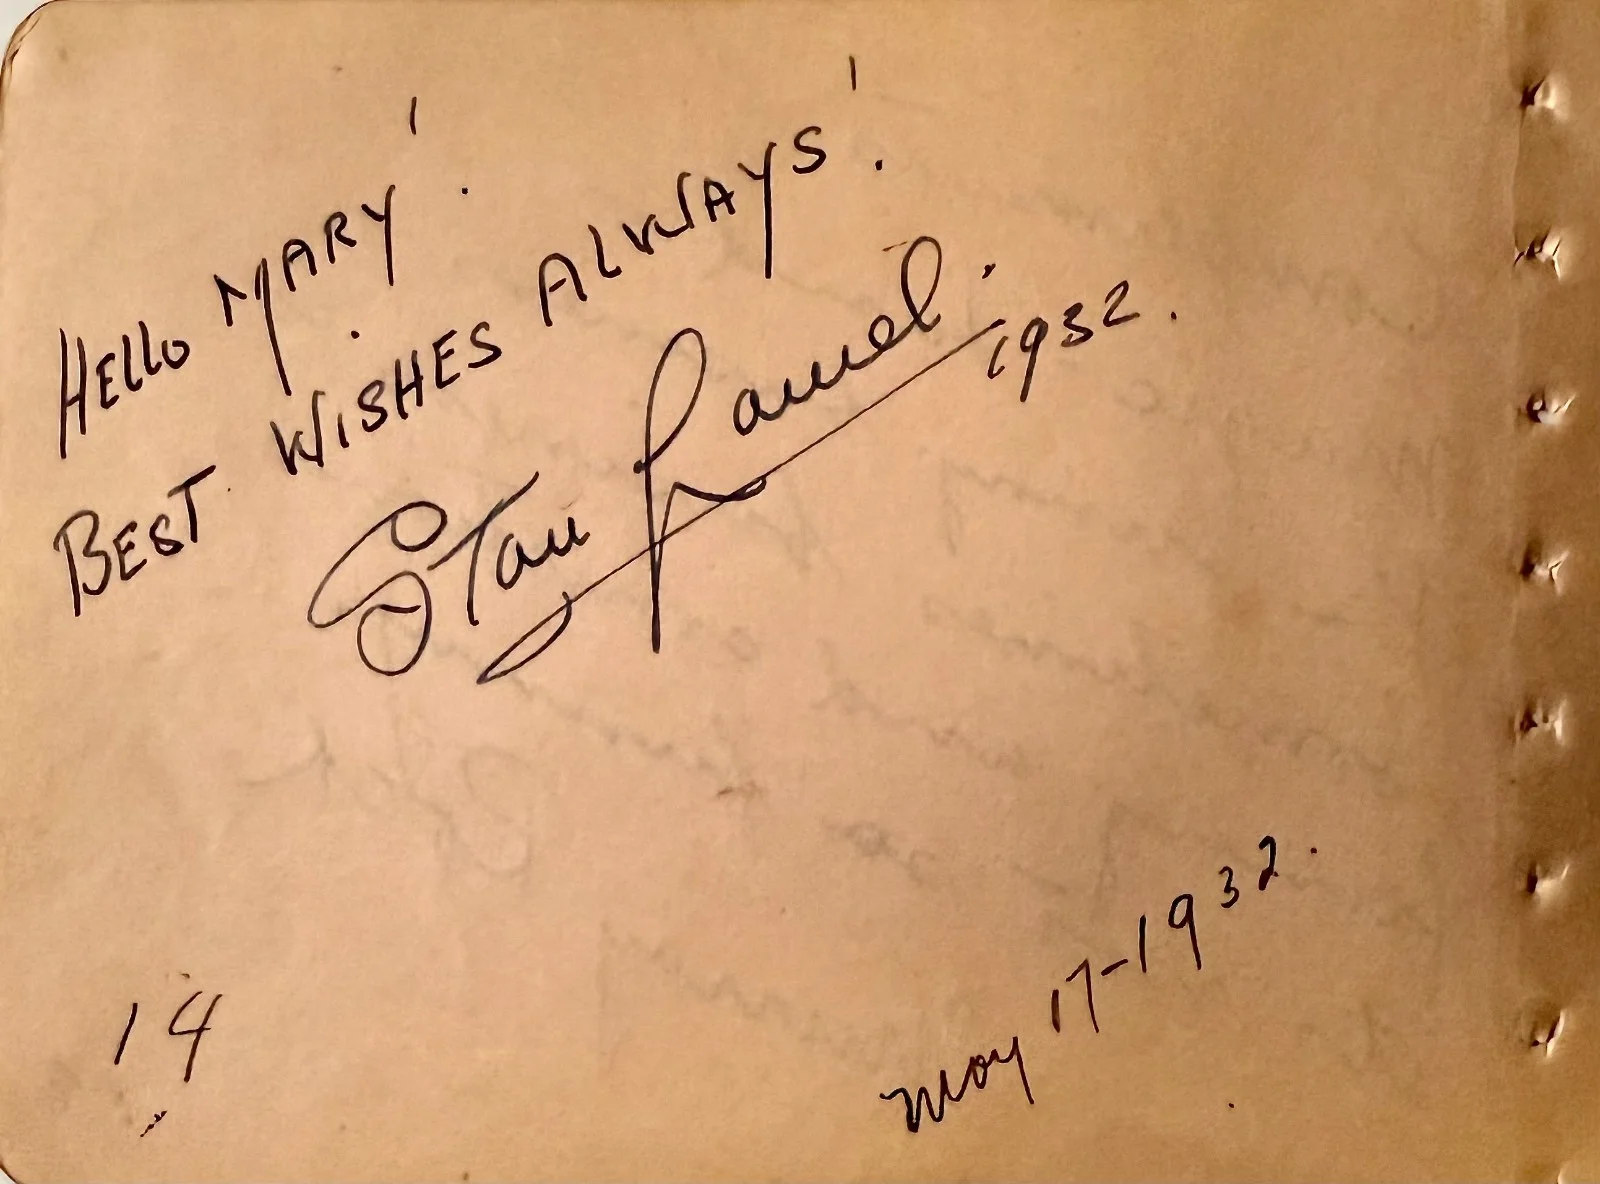 HELLO MARY!
BEST WISHES ALWAYS!
Stan Laurel.
1932.
14
May 17-1932.